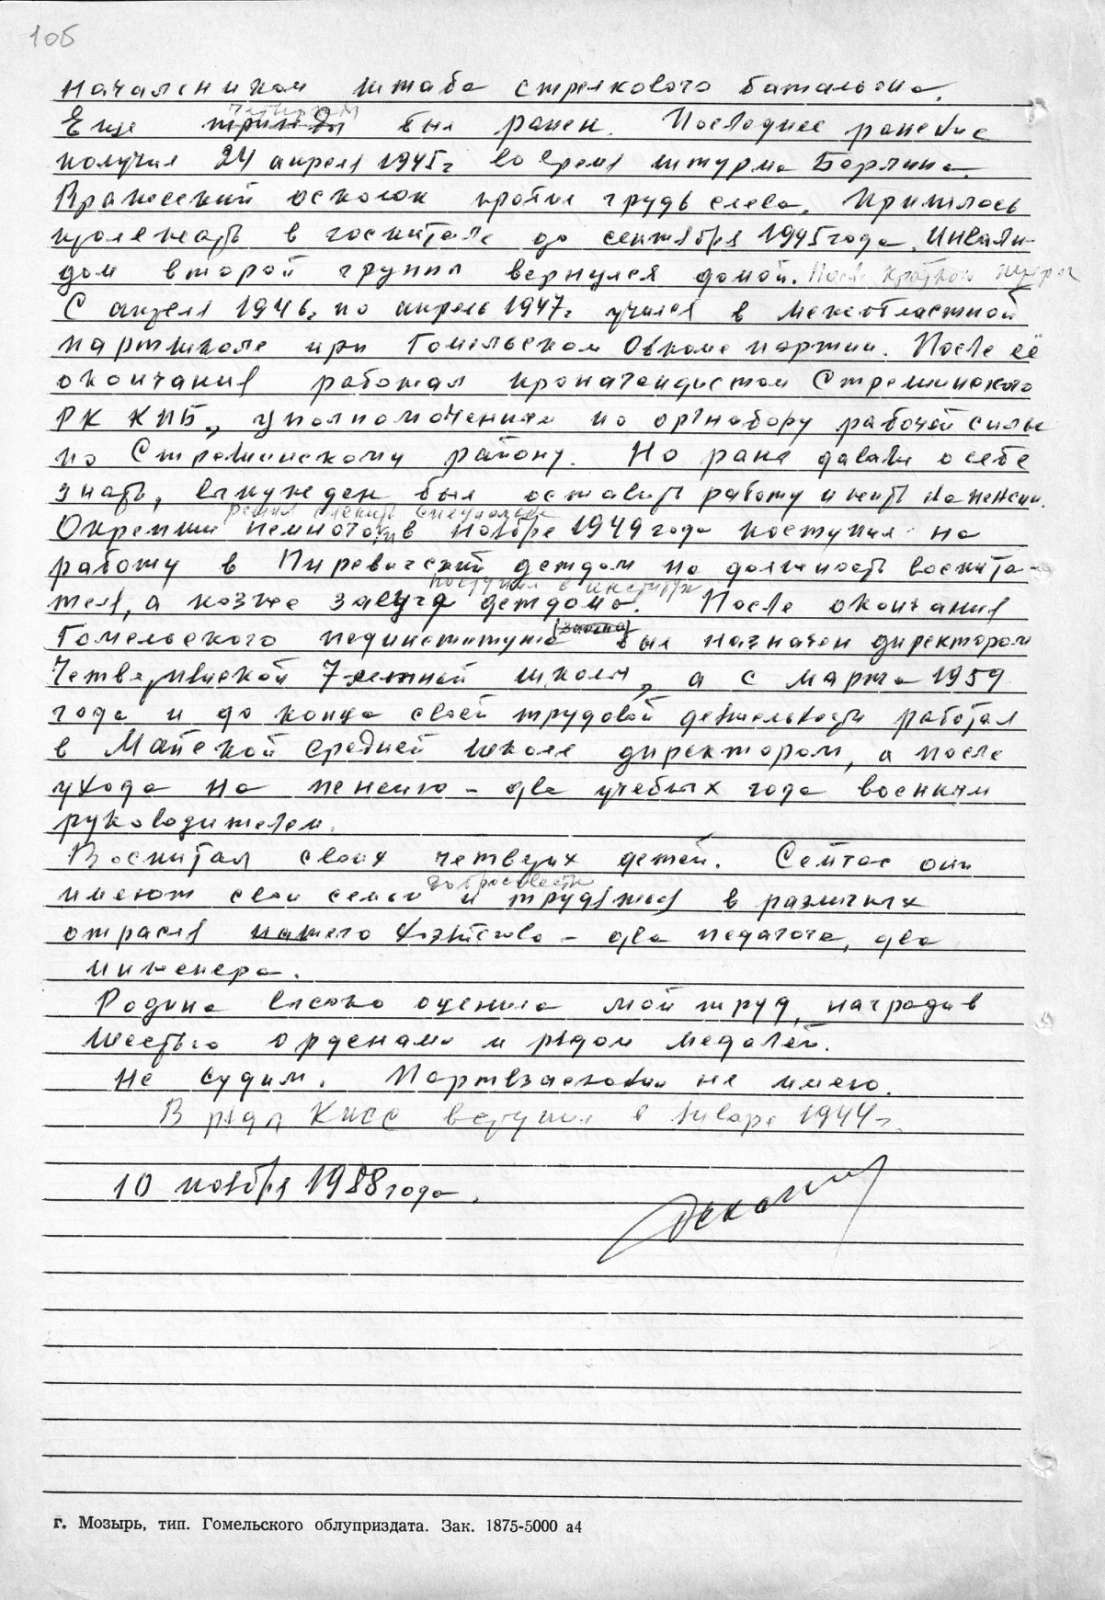 105
начальником штаба стрелкового батальона.
Еще трижды был ранен. Последнее ранение
получил 24 апреля 1945 г во время штурма Берлина.
Вражеский осколок пробил грудь слева. Пришлось
пролежать в госпитале до сентября 1945 года. Инвали-
дом второй группы вернулся домой. После краткой
С апреля 1946 г. по апрель 1947 г учился в межобластной
партшколе при Гомельском Обкоме партии. После её
окончания работал пропагандистом Стрешинского
РК КПБ, уполномоченным по оргнабору рабочей силы
по Стрешинскому району. Но раны давали о себе
знать, вынужден был оставить работу и жить на пенсии.
решил сменить специальность
Окрепши немного, и в ноябре 1949 года поступил на
работу в Пиревичский детдом на должность воспита-
поступил в институт
теля, а позже завуча детдома. После окончания
Гомельского пединститута (заочно) был назначен директором
Четверннской 7-летней школы, а с марта 1959
года и до конца своей трудовой деятельности работал
в Майской средней школе директором, а после
ухода на пенсию - два учебных года военным
руководителем.
Воспитал своих четверых детей. Сейчас они
добросовестн
имеют свои семьи и трудятся в различных
отраслях нашего хозяйства - два педагога, два
инженера.
Родина высоко оценила мой труд, наградив
шестью орденами и рядом медалей.
Не судим. Партвзыскании не имею.
В ряды КПСС вступил в январе 1944 г.
10 ноября 1988 года.
г. Мозырь, тип. Гомельского облуприздата. Зак. 1875-5000 а4